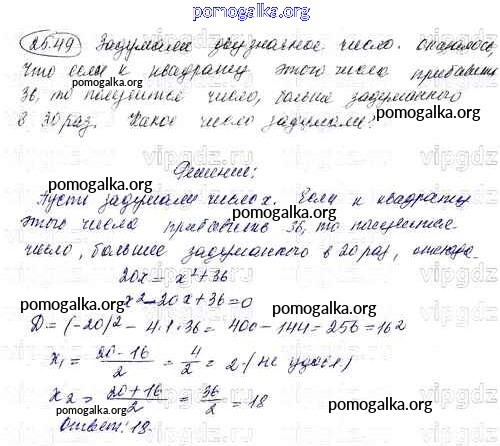 pomogalka.org
25.49 Задумали двузначное число. Оказалось,
что если к квадрату этого числа прибавить
36, то получится число, больше задуманного
в 30 раз. Какое число задумали?
Решение:
pomogalka.org
Пусть задумали число x. Если к квадрату
этого числа прибавить 36, то получится
число, большее задуманного в 20 раз, отсюда
pomogalka.org
20x = x² + 36
x² - 20x + 36 = 0
D = (-20)² - 4·1·36 = 400 - 144 = 256 = 16²
x₁ = (20-16)/2 = 4/2 = 2 - (не удовл)
x₂ = (20+16)/2 = 36/2 = 18
Ответ: 18.
pomogalka.org